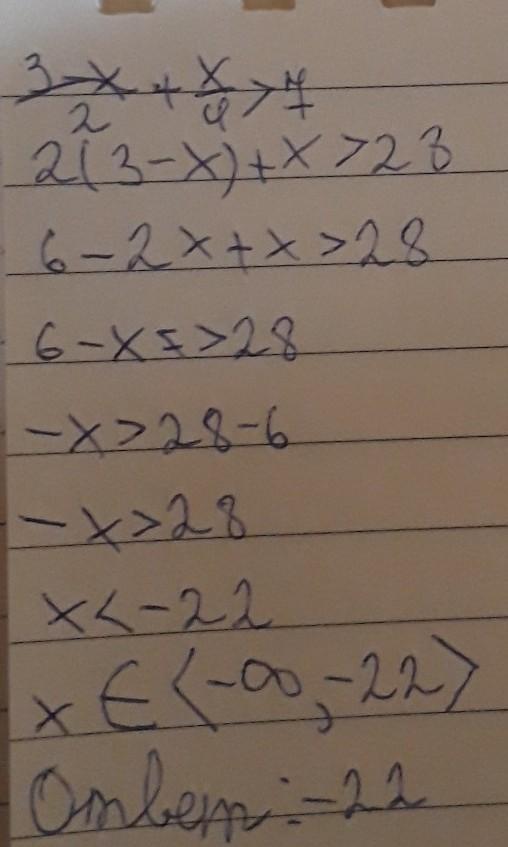 3-x/2 + x/4 > 7
2(3-x)+x>28
6-2x+x>28
6-x=>28
-x>28-6
-x>28
x<-22
x∈⟨-∞,-22⟩
Ответ:-22